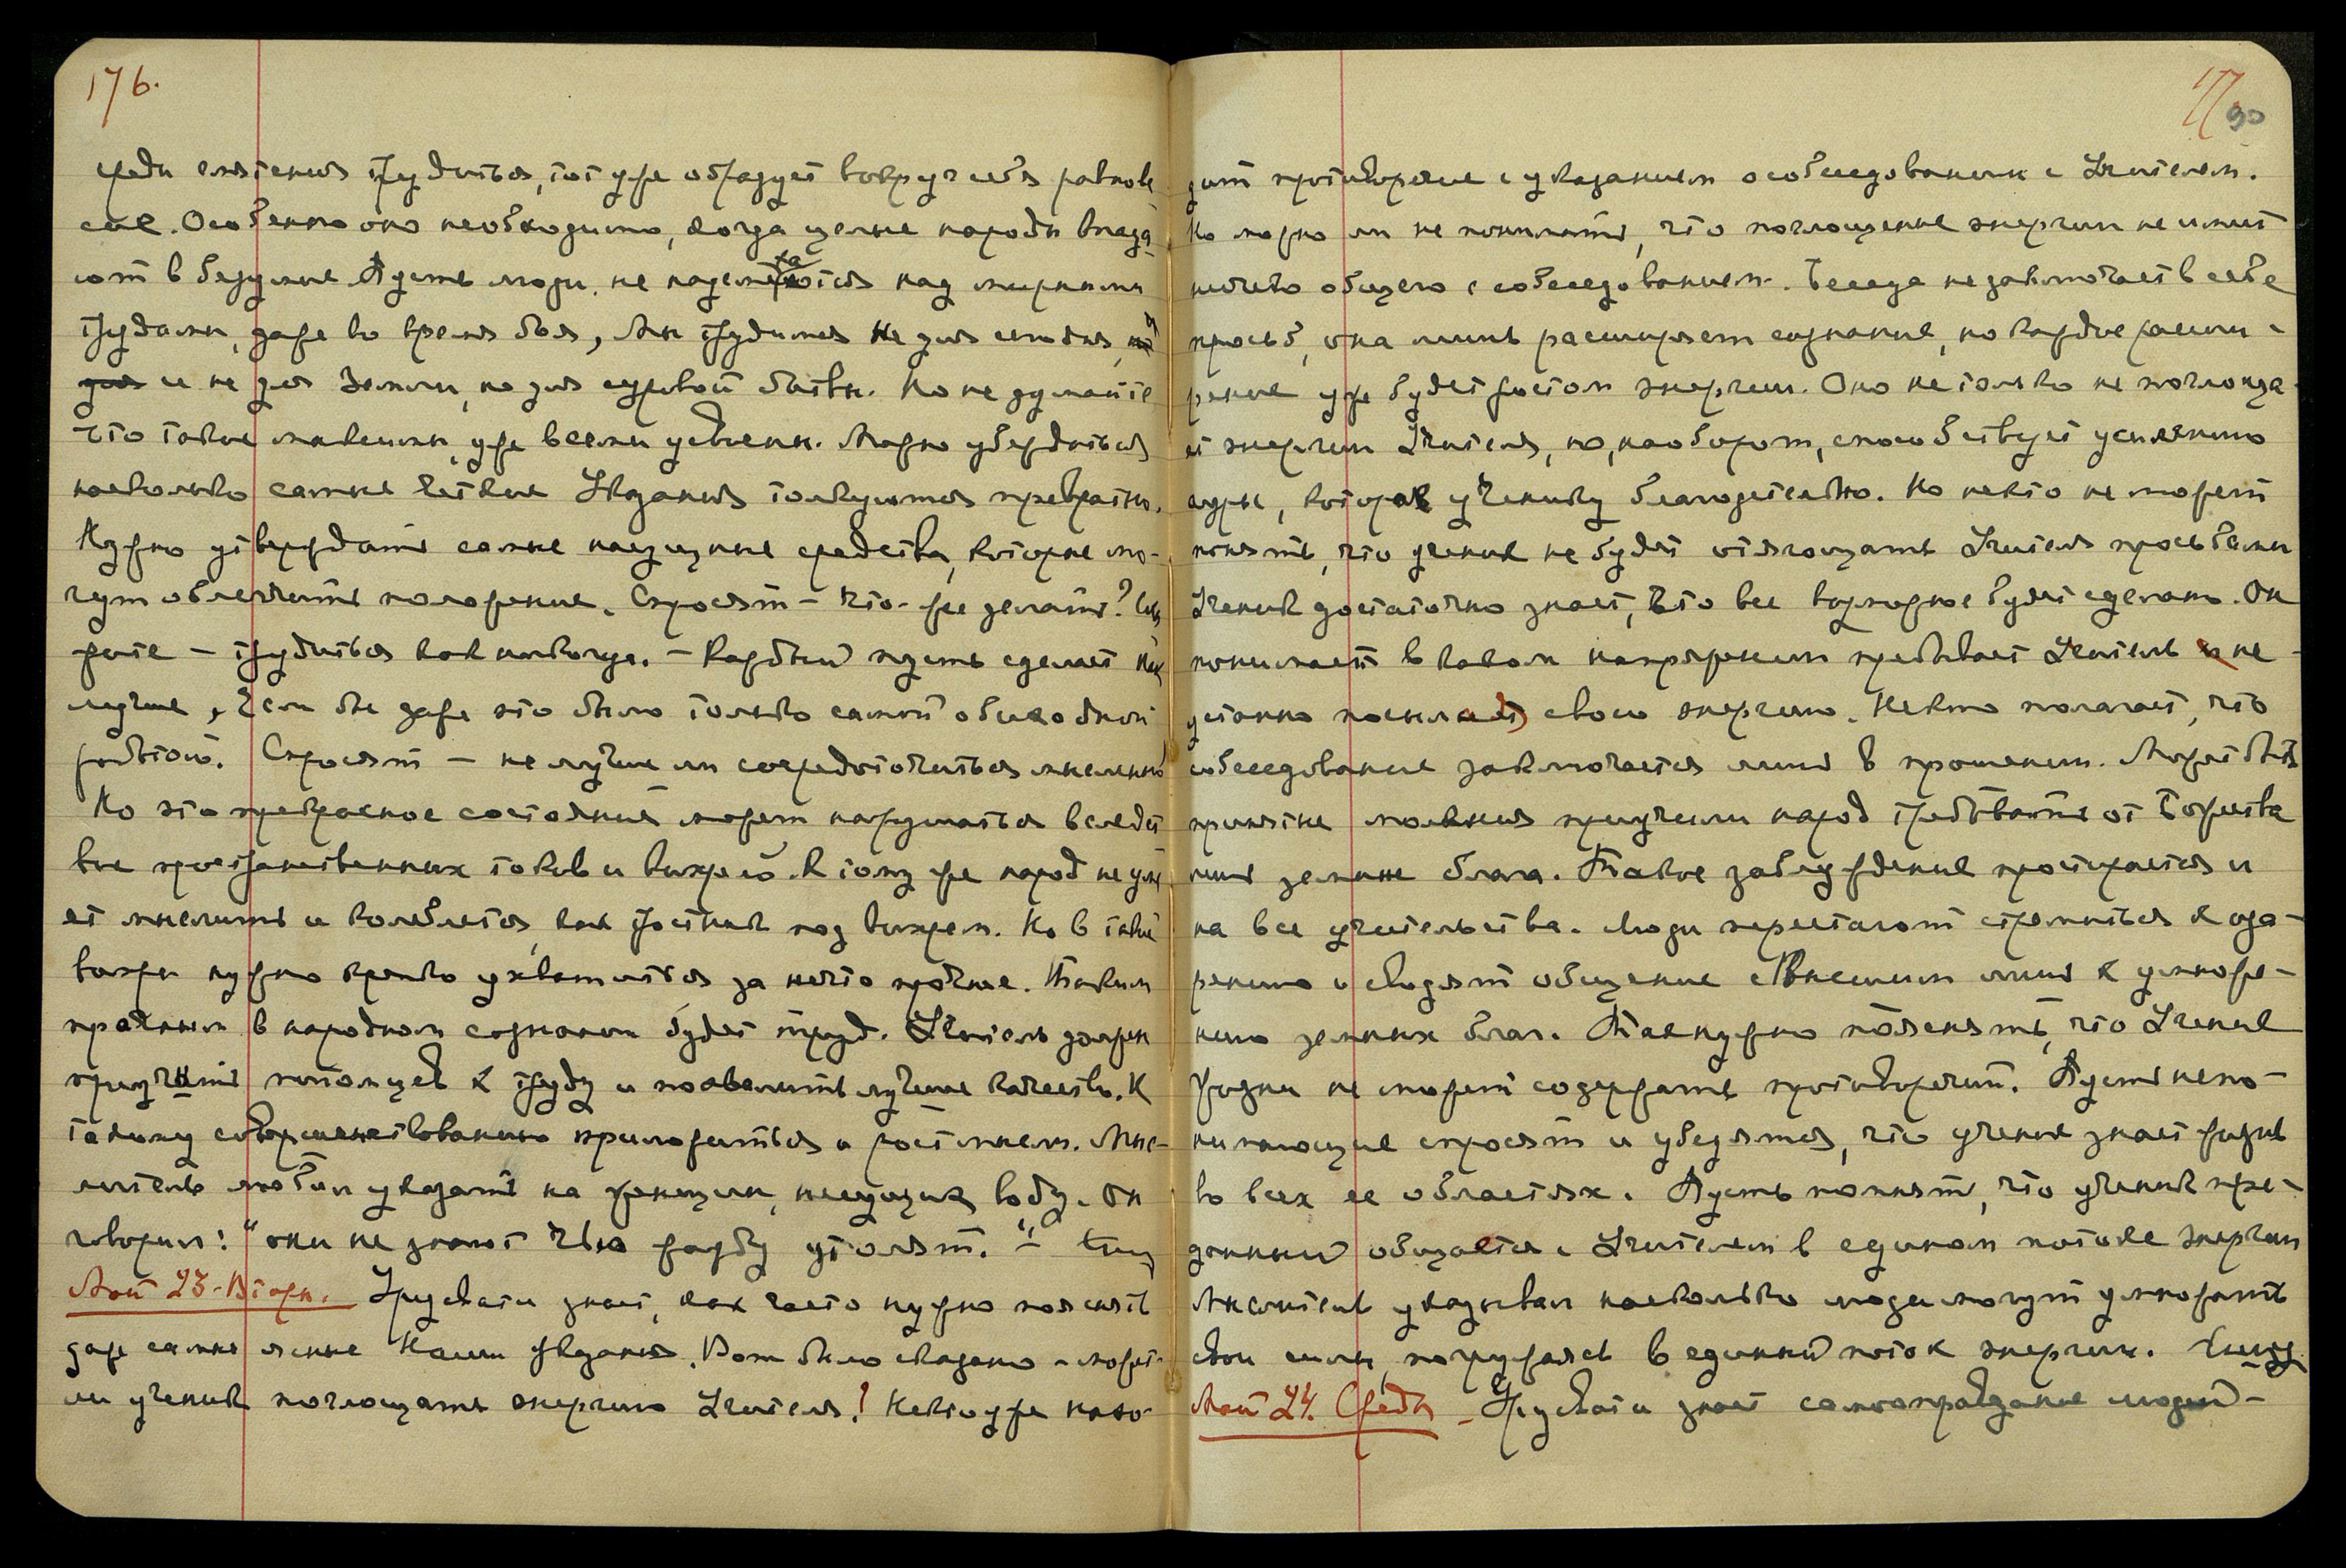 176.
среди смятения трудиться, тот уже образует вокруг себя равнове
сие. Особенно оно необходимо, когда целые народы впада-
ют в безумие Пусть люди, не надсмехаются над мирными
трудами, даже во время боя, Мы трудимся не для сегодня,
и не для Земли, но для суровой битвы. Но не думайте
что такие мысли, уже всеми усвоены. Можно убердиться
насколько самые четкие Указания толкуются превратно.
Нужно утверждать самые насущные средства, которые мо-
гут облегчить положение. Спросят – что-же делать? Ска
жите – трудиться как никогда. – Каждый пусть сделает наи
лучше, если бы даже это было только самой обиходной
работой. Спросят – не лучше ли сосредоточиться мысленно
Но это прекрасное состояние может нарушаться вследст
вие пространственных токов и вихрей. К тому же народ не уме
ет мыслить и колеблется, как тростник под вихрем. Но в такие
вихри нужно крепко ухватиться за нечто прочное. Таким
прочным в народном сознании будет труд. Учитель должен
приучать питомцев к труду и похвалить лучшее качество. К
такому совершенствованию приложиться и рост мысли. Мыс-
литель любил указать на женщин, несущих воду. Он
говорил: "они не знают чью жажду утолят." –
Май 23-Вторн. Урусвати знает, как часто нужно пояснять
даже самые ясные Наши Указания. Вот было сказано – может-
ли ученик поглощать энергию Учителя! Некто уже нахо-
177
90
дит противоречие с указанием о собеседовании с Учителем.
Но можно ли не понимать, что поглощение энергии не имеет
ничего общего с собеседованием. Беседа не заключает в себе
просьб, она лишь расширяет сознание, но каждое расши-
рение уже будет ростом энергии. Оно не только не поглоща-
ет энергии Учителя, но, наоборот, способствует усилению
ауры, которое ученику благодетельно. Но некто не может
понять, что ученик не будет отягощать Учителя просьбами
Ученик достаточно знает, что все возможное будет сделано. Он
понимает в каком напряжении пребывает Учитель не-
устанно посылая свою энергию. Некто полагает, что
собеседование заключается лишь в прошении. Может быть
принятые моления приучили народ требовать от Божества
лишь земные блага. Такое заблуждение простирается и
на все учительства. Люди перестают стремиться к оза-
рению и сводят общение с Высшим лишь к умноже-
нию земных благ. Так нужно пояснять, что Учение
Жизни не может содержать противоречий. Пусть непо-
нимающие спросят и убедятся, что учение знает жизнь
во всех ее областях. Пусть помнят, что ученик пре-
данный общается с Учителем в едином потоке энергии
Мыслитель указывал насколько люди могут умножать
свои силы, погружаясь в единый поток энергии.
Май 24. Среда – Урусвати знает самооправдание людей –